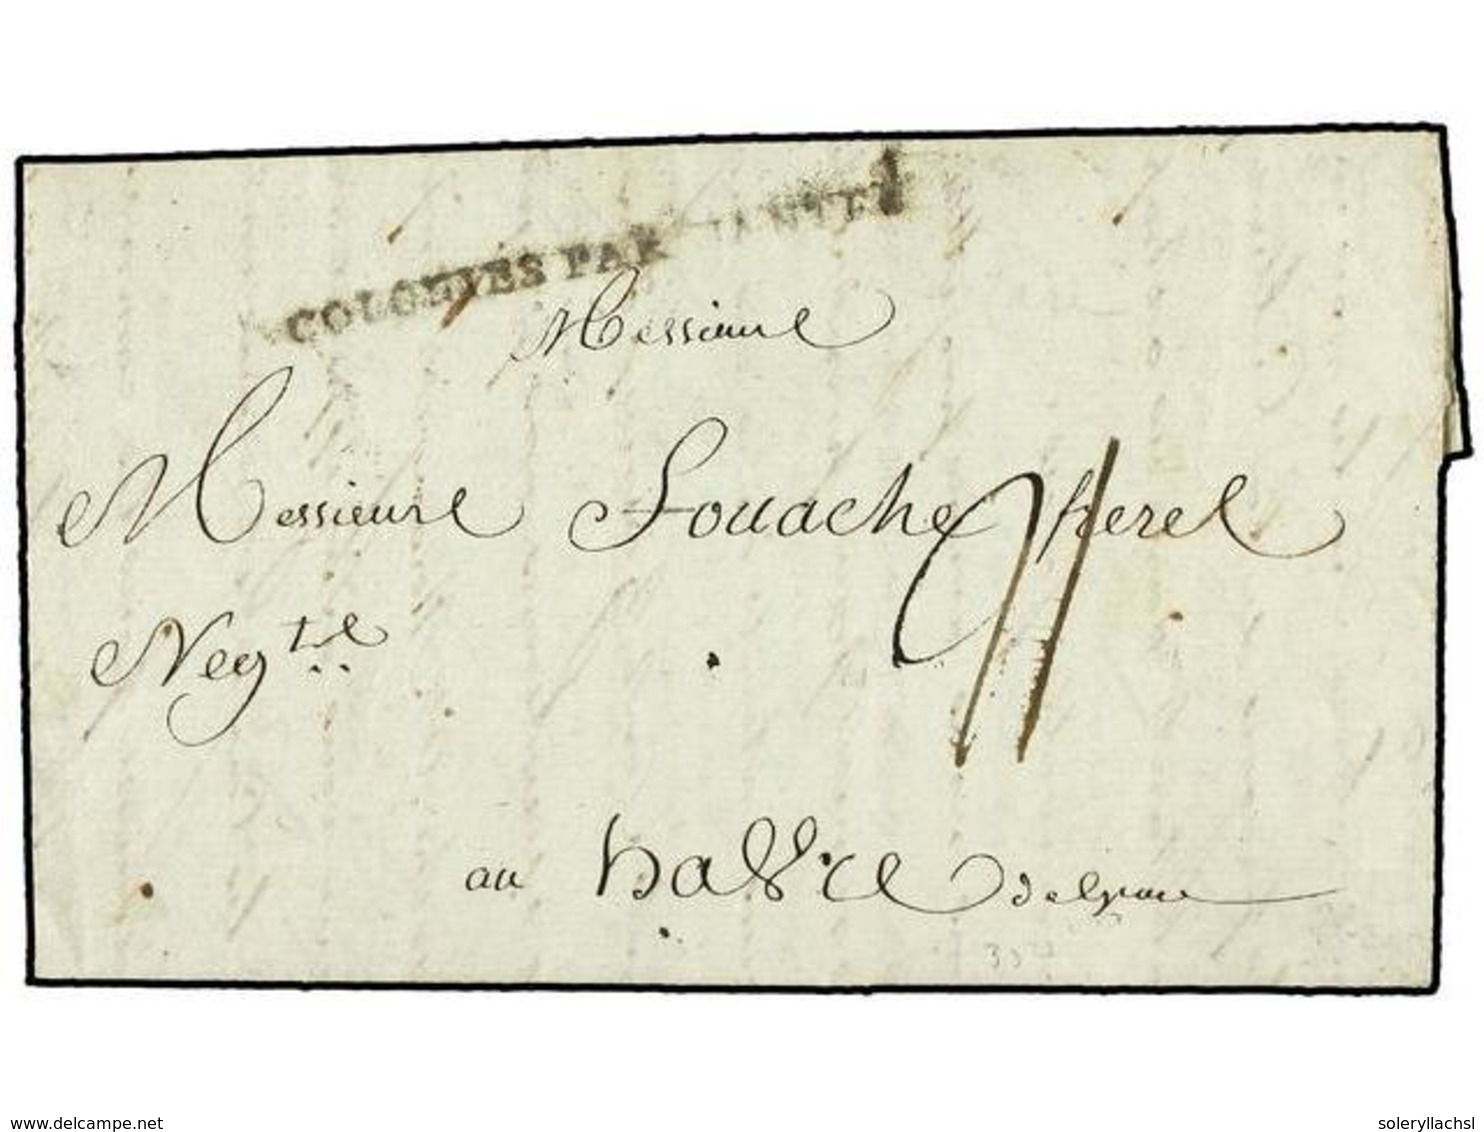 COLONIES PAR NANTES
Messieurs
Messieurs Fouache freres
Negts
au havre de grace
delcampe.net
soleryllachsl